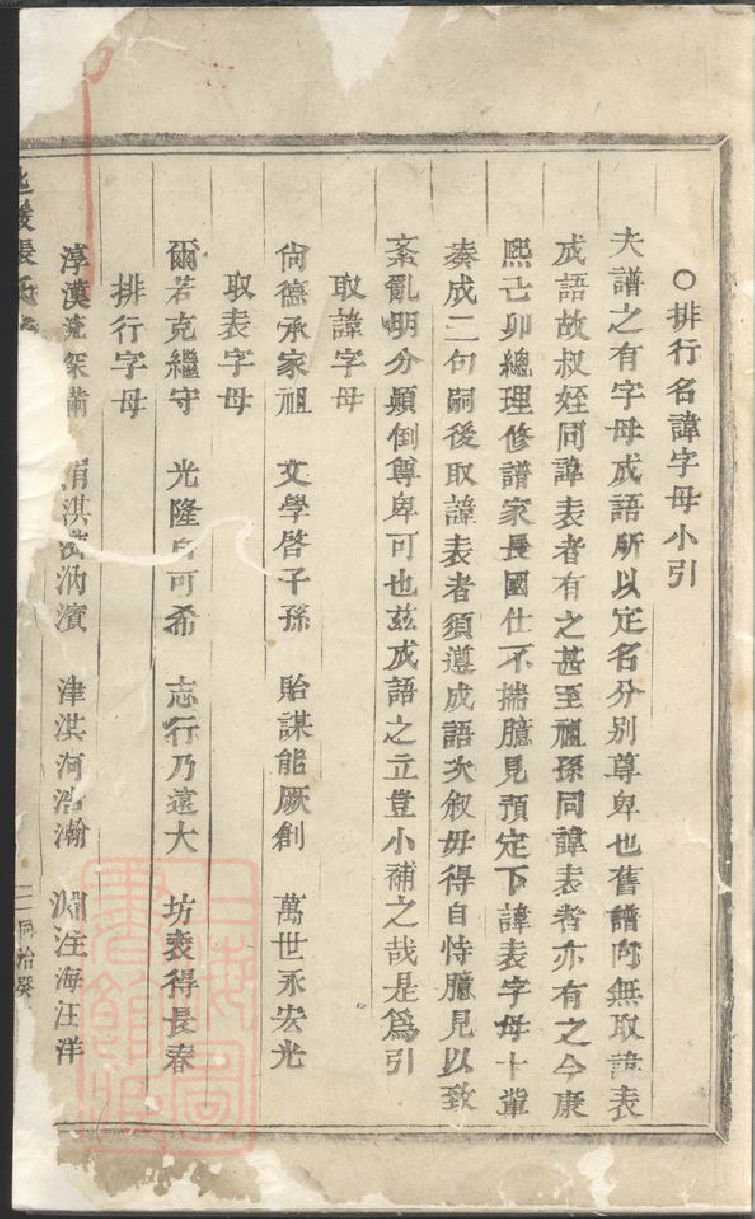 ○排行名諱字母小引
夫譜之有字母成語所以定名分別尊卑也舊譜向無取諱表
成語故叔姪同諱表者有之甚至祖孫同諱表者亦有之今康
熙己卯總理修譜家長國仕不揣臆見預定下諱表字母十輩
奏成二句嗣後取諱表者須遵成語次叙毋得自恃臆見以致
紊亂明分顛倒尊卑可也茲成語之立豈小補之哉是爲引
取諱字母
尙德承家祖 文學啓子孫 貽謀能厥創 萬世永宏光
取表字母
爾若克繼守 光隆自可希 志行乃遠大 坊表得長春
排行字母
淳漢深 淇汭濱 津淇河浩瀚 淵注海汪洋
同治癸